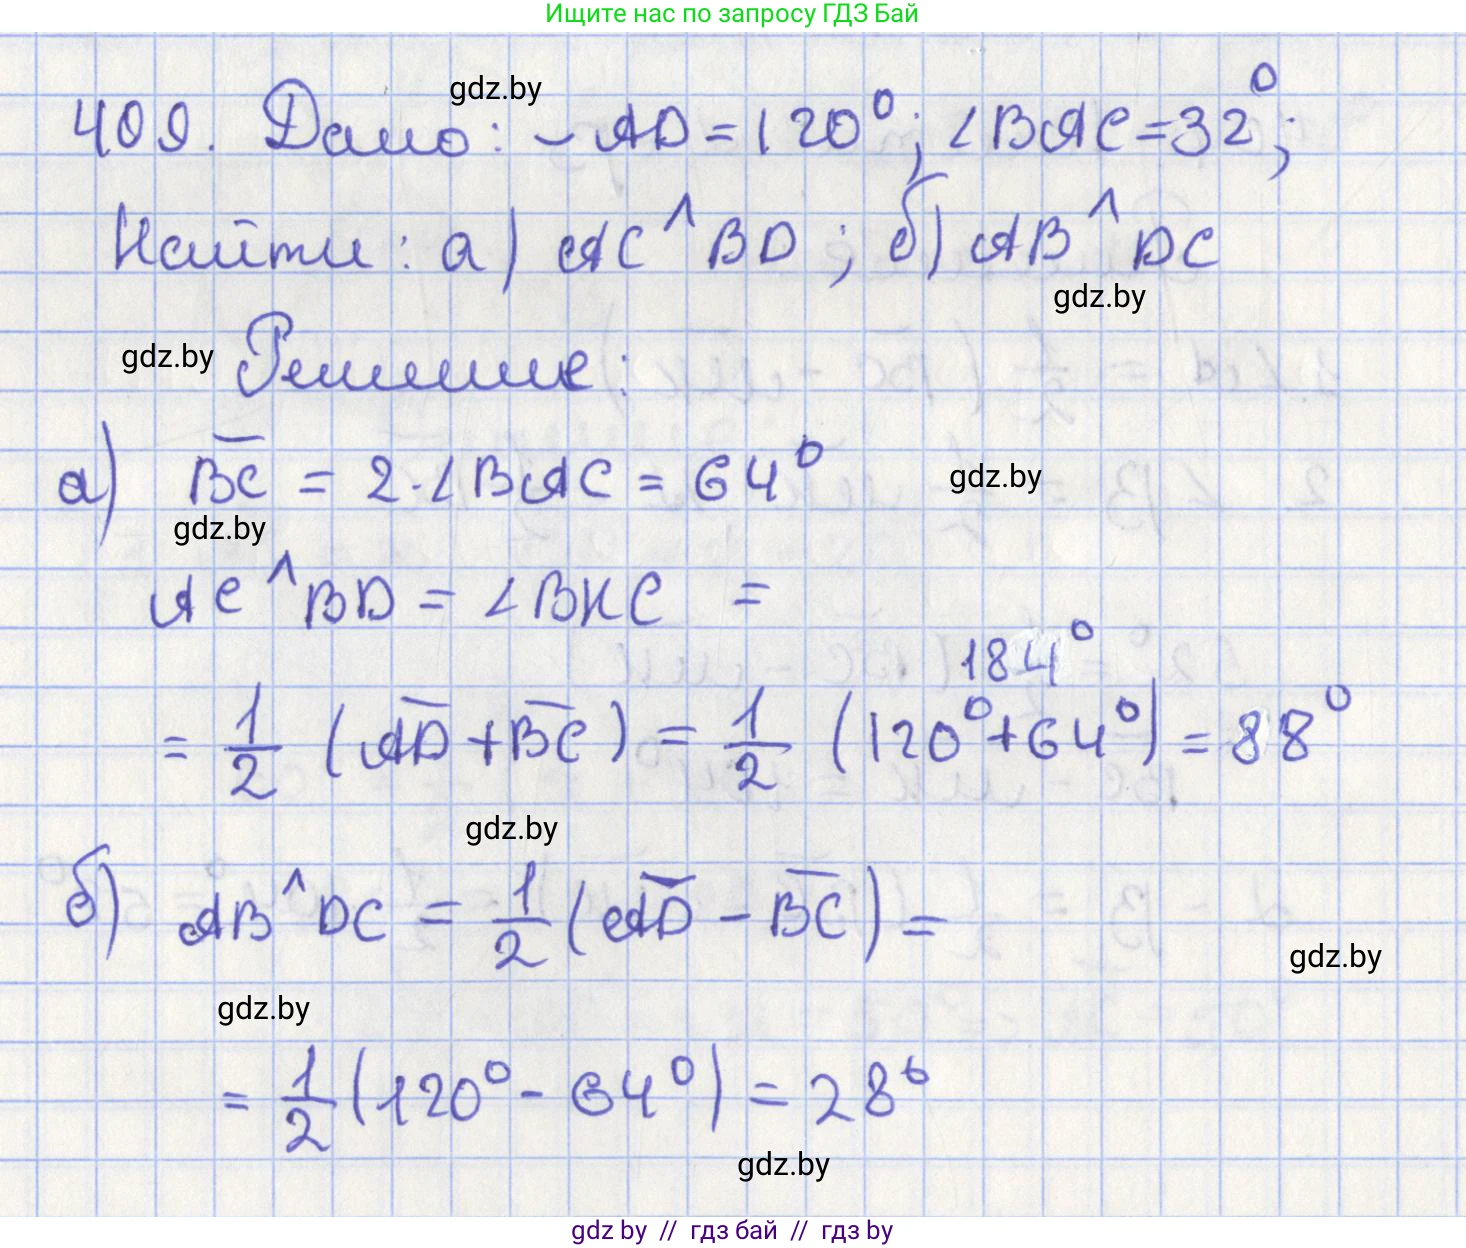 Ищите нас по запросу ГДЗ Бай
gdz.by
409. Дано: ⌣AD = 120°; ∠BAC = 32°;
Найти: а) AC ^ BD ; б) AB ^ DC
gdz.by
gdz.by
Решение:
а) BC = 2·∠BAC = 64°
gdz.by
gdz.by
AC ^ BD = ∠BKC =
184°
= 1/2 (AD + BC) = 1/2 (120° + 64°) = 88°
gdz.by
б) AB ^ DC = 1/2 (AD - BC) =
gdz.by
gdz.by
= 1/2 (120° - 64°) = 28°
gdz.by
gdz by // гдз бай // гдз by